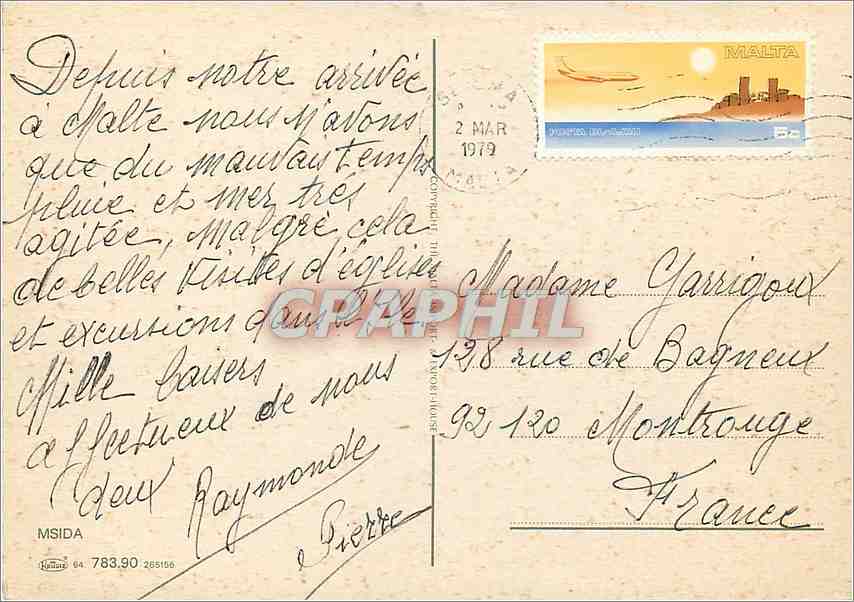 Depuis notre arrivée
à Malte nous n'avons
que du mauvais temps
pluie et mer très
agitée, malgré cela
de belles visites d'églises
et excursions dans l'Ile
Mille baisers
affectueux de nous
deux Raymonde
Pierre
MSIDA
64 783.90 265156
CPAPHIL
COPYRIGHT
EXPORT-HOUSE
2 MAR
1979
MALTA
MALTA
POSTA BL-AJRU
5c
Madame Garrigoux
128 rue de Bagneux
92120 Montrouge
France